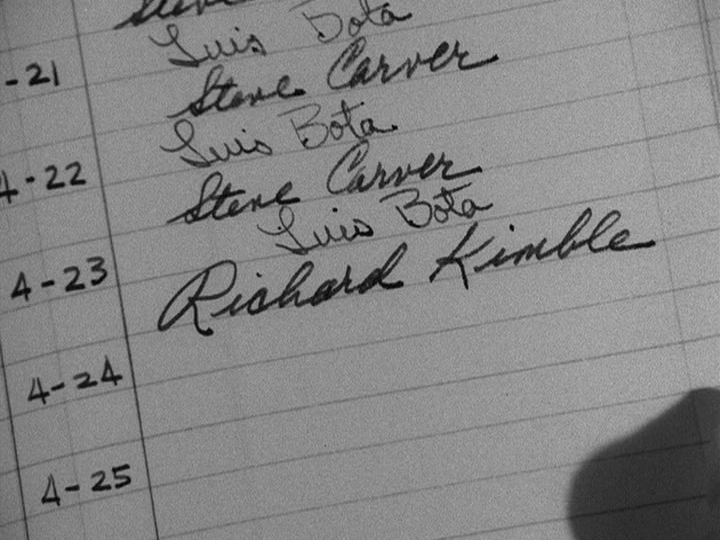 Luis Bota
-21 Steve Carver
Luis Bota
4-22 Steve Carver
Luis Bota
4-23 Richard Kimble
4-24
4-25